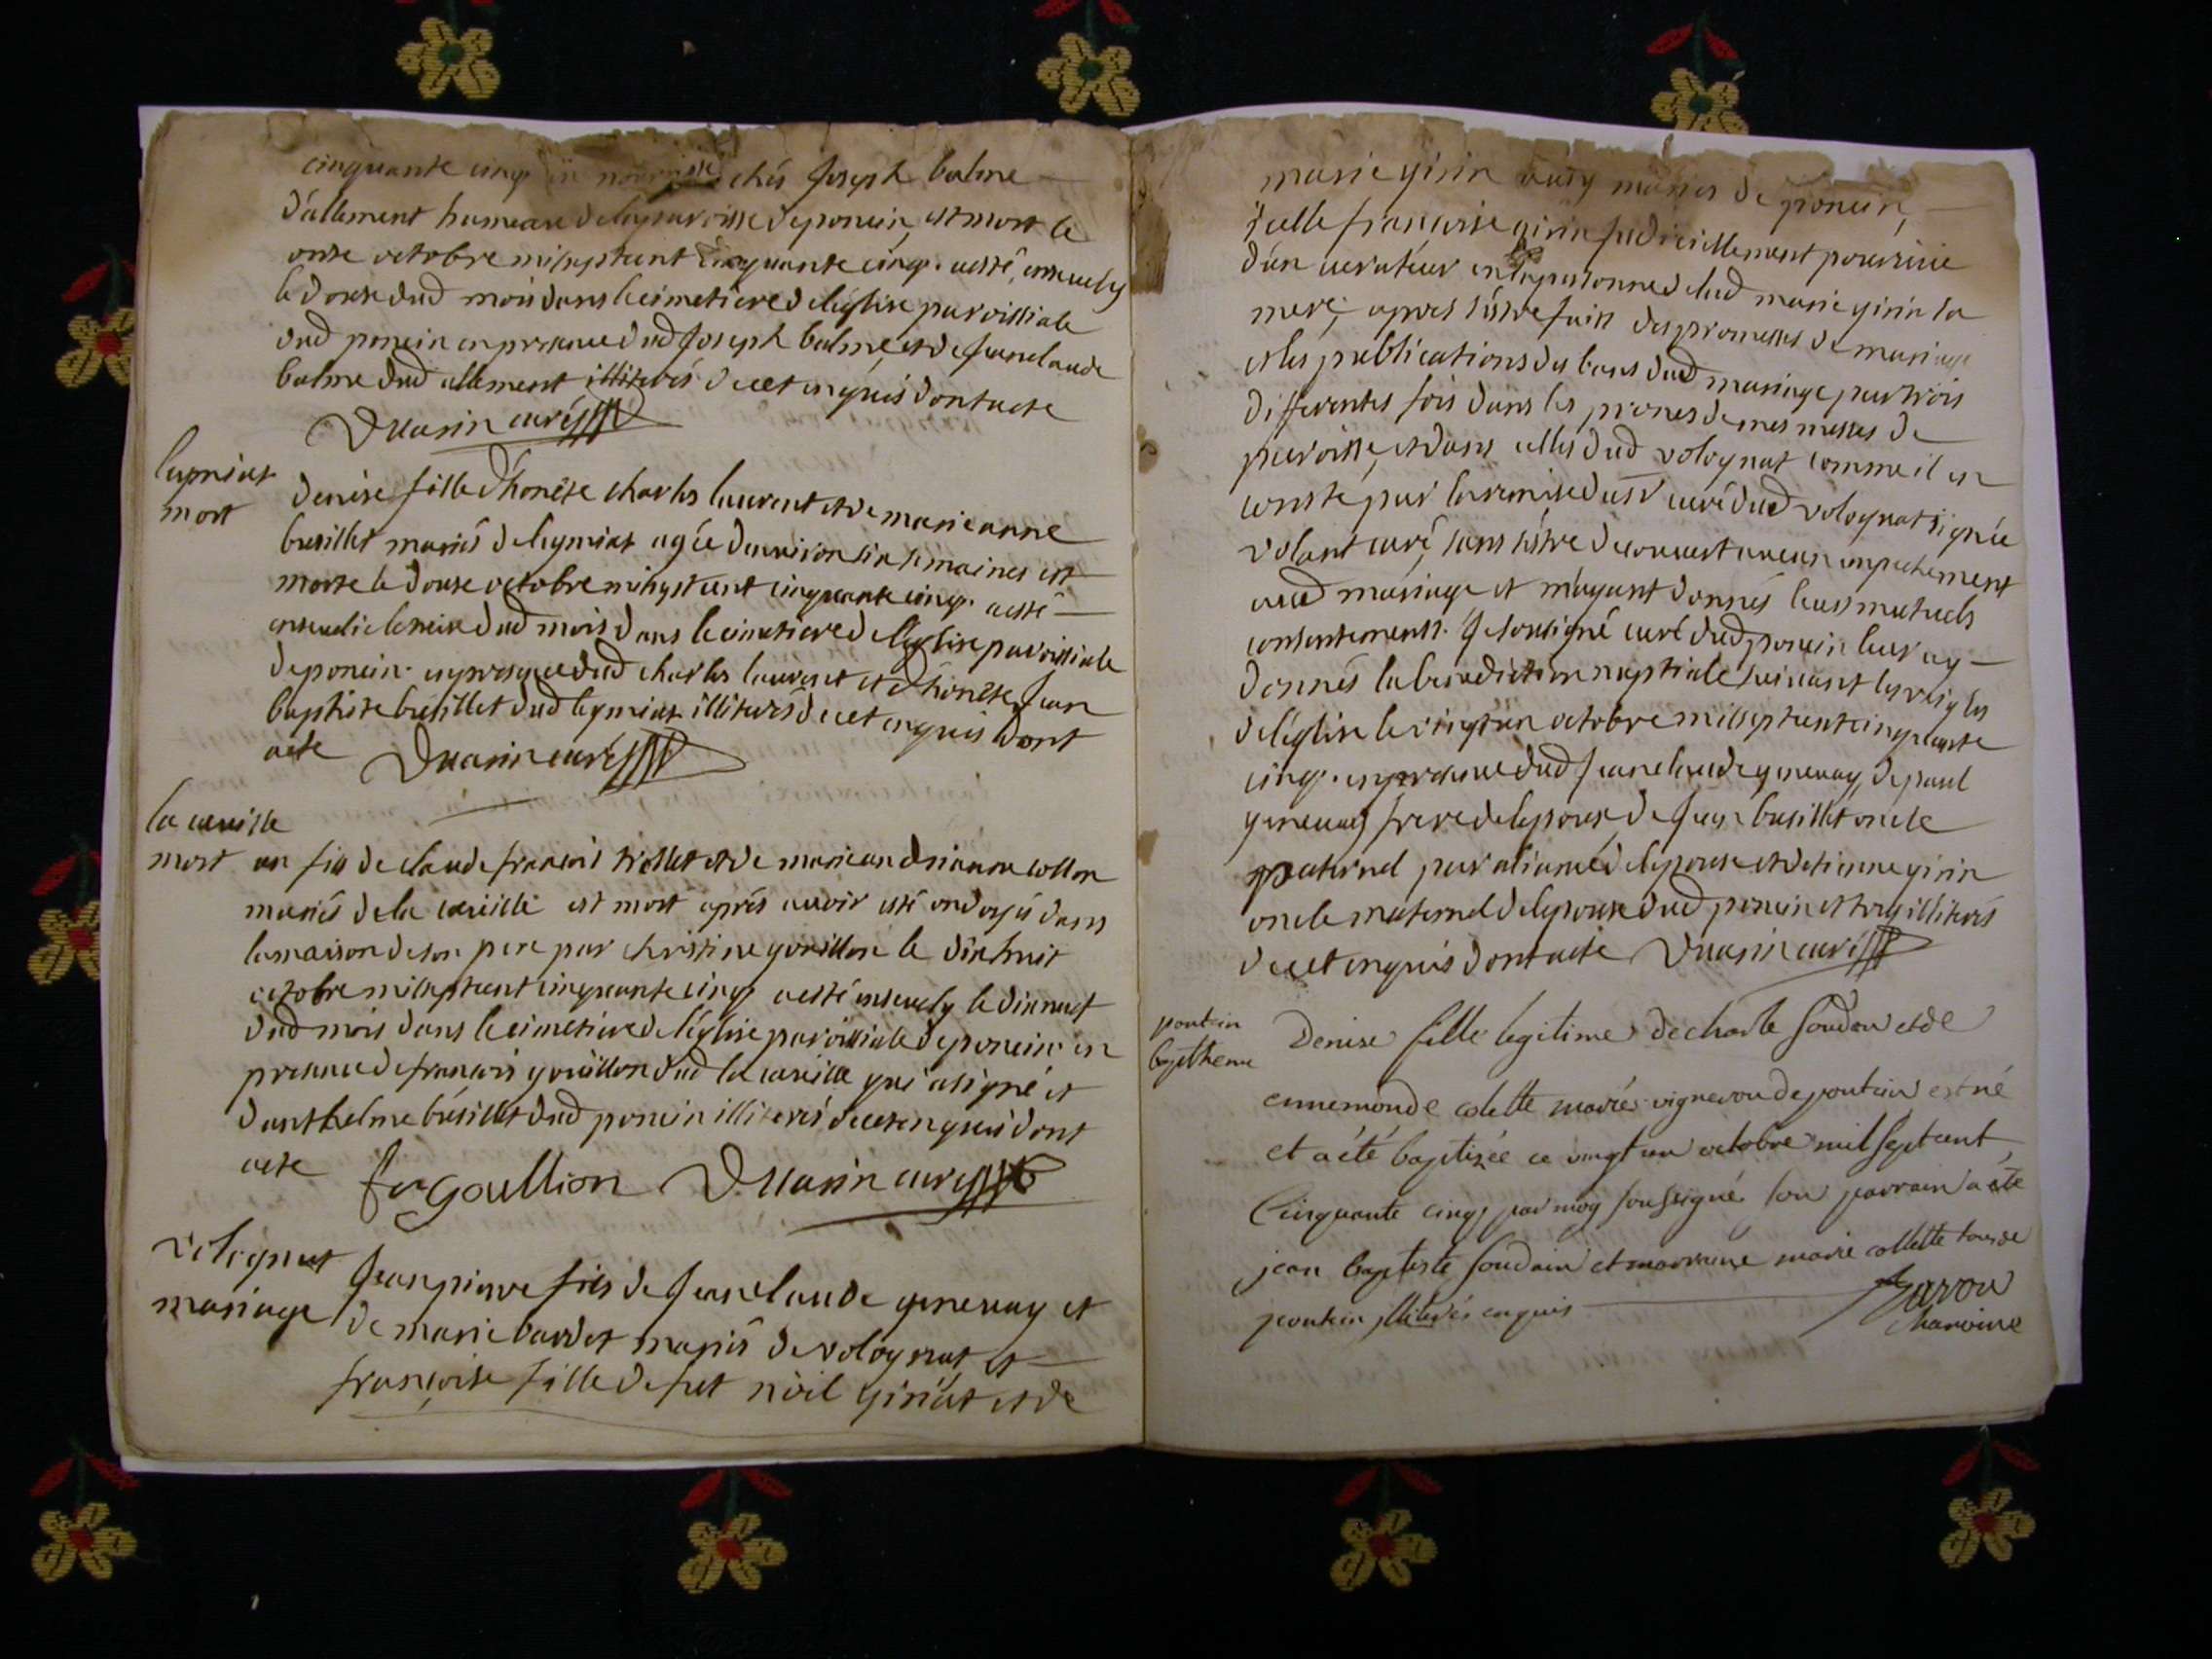 cinquante cinq en nourrisse chés Joseph balme
d'allement hameau de la paroisse de poncin, est mort le
onse octobre mil sept cent cinquante cinq. a esté ensevely
le douse dud mois dans le cimetiere de l'église paroissiale
dud poncin en presence dud Joseph balme, et de Jeanclaude
balme dud allement illiterés de cet enquis dont acte
D Uarin curé
leymiat
mort
Denise fille d'honête charles laurent et de marie anne
busillet mariés de leymiat agée d'environ six semaines est
morte le douse octobre mil sept cent cinquante cinq. a esté
ensevelie le treise dud mois dans le cimetiere de l'église paroissiale
de poncin. en presence dud charles laurent et d'honête Jean
baptiste busillet dud leymiat illiterés de cet enquis dont
acte D uarin curé
la cueille
mort
un fils de claude françois triollet et de marie andrianne collon
mariés de la cueille est mort aprés avoir esté ondoyé dans
la maison de son pere par christine gouillon le dixhuit
octobre mil sept cent cinquante cinq a esté ensevely le dixneuf
dud mois dans le cimetiere de l'église paroissiale de poncin. en
presence de françois gouillon dud la cueille qui a signé et
d'anthelme busillet dud poncin illiterés de cet enquis dont
acte fr Goullion D. Uarin curé
volognat
mariage
Jeanpierre fils de Jeanclaude genevay et
de marie bardet mariés de volognat, et
françoise fille de fut noël girin et de
marie girin aussy mariés de poncin,
icelle françoise girin judiciellement pourvüe
d'un curateur en la personne de lad marie girin sa
mere, apres s'éstre faits des promesses de mariage
et les publications des bans dud mariage par trois
differentes fois dans les prones de mes messes de
paroisse, et dans celles dud volognat comme il en
conste par la remise du sr curé dud volognat signée
volant curé, sans s'éstre decouvert aucun empechement
aud mariage et m'ayant donnés leurs mutuels
consentements. Je soussigné curé dud poncin leur ay
donnés la benediction nuptiale suivant les reigles
de l'église le vingt un octobre mil sept cent cinquante
cinq. en presence dud Jeanclaude genevay, de paul
genevay frere de l'epoux, de Jean busillet oncle
paternel par aliance de l'epouse et d'etienne girin
oncle maternel de l'epouse dud poncin et tous illiterés
de cet enquis dont acte D uarin curé
pontcin
baptheme
Denise fille legitime de charle soudan et de
ennemonde colette mariés vigneron de pontcin est né
et a été baptizée ce vingt un octobre mil sept cent
Cinquante cinq, par moy soussigné son parrain a été
jean baptiste soudain et marraine marie collette tous de
pontcin illiterés enquis
chanoine